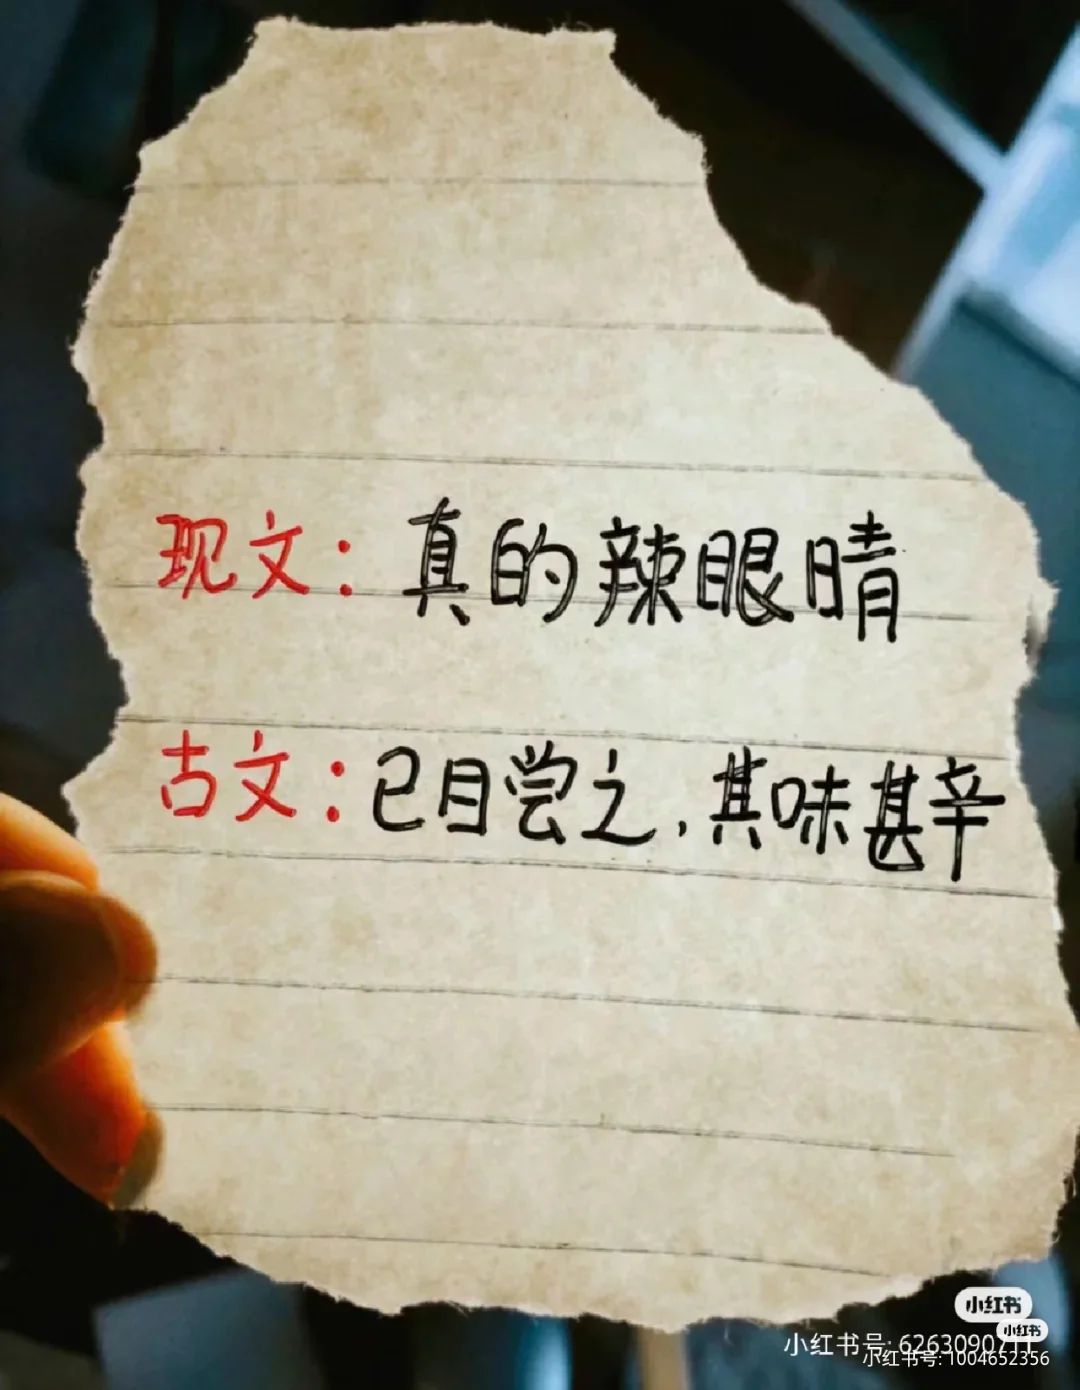 现文：真的辣眼晴
古文：已目尝之，其味甚辛
小红书
小红书
小红书号: 6263090711
小红书号: 1004652356